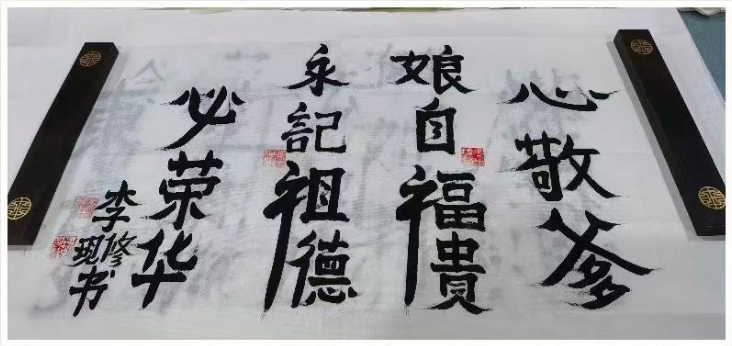 心敬爹
娘自福貴
永記祖德
必荣华
李修现书